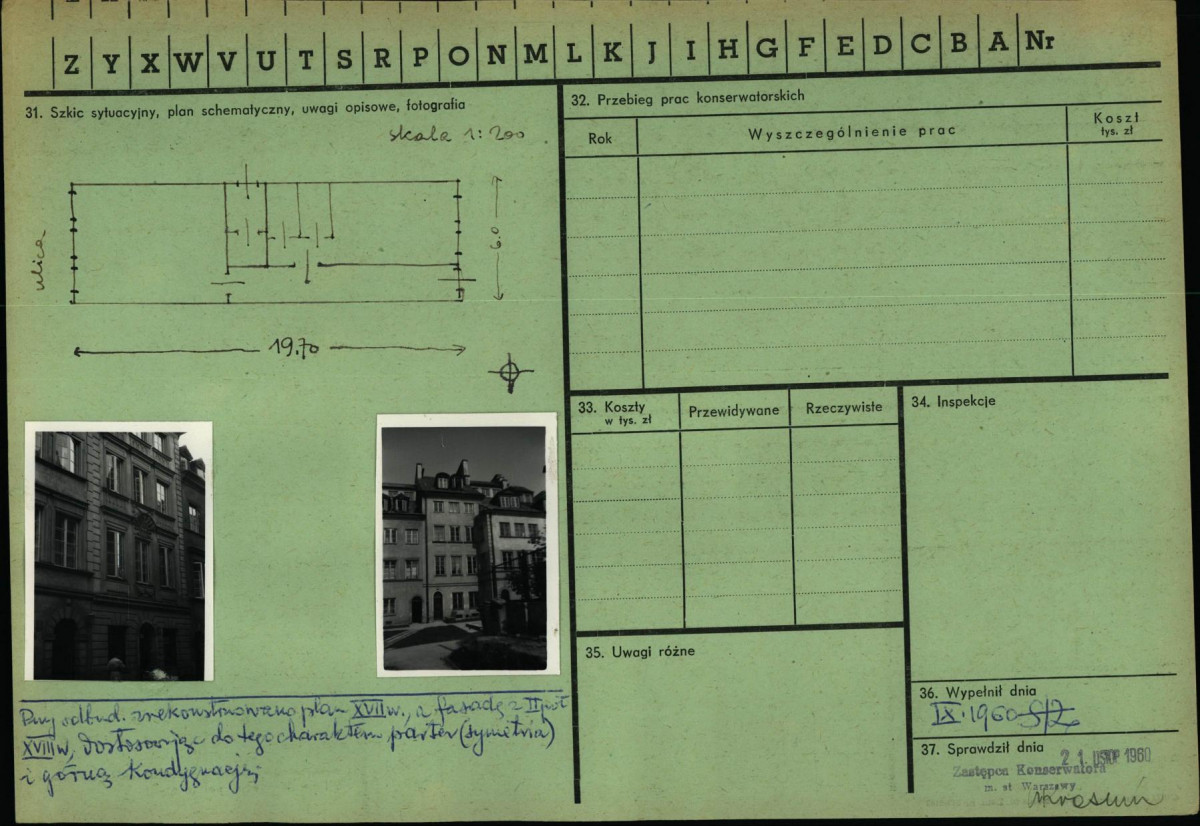 Z Y X W V U T S R P O N M L K J I H G F E D C B A Nr
31. Szkic sytuacyjny, plan schematyczny, uwagi opisowe, fotografia
skala 1:200
ulica
6.0
19.70
Przy odbud. zrekonstruowano plan XVII w., a fasadę z II poł
XVIII w, dostosowując do tego charakteru parter (symetria)
i górną kondygnację
32. Przebieg prac konserwatorskich
Rok
Wyszczególnienie prac
Koszt
tys. zł
33. Koszty
w tys. zł
Przewidywane
Rzeczywiste
34. Inspekcje
35. Uwagi różne
36. Wypełnił dnia
IX.1960
37. Sprawdził dnia
21. LISTOP 1960
Zastępca Konserwatora
m. st Warszawy